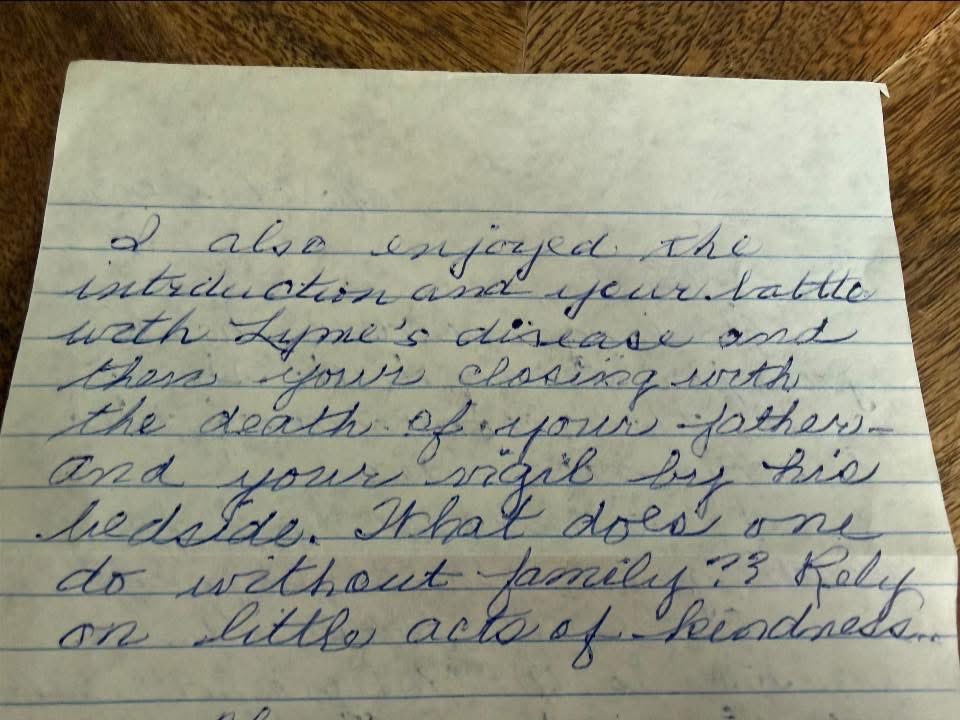 I also enjoyed the
introduction and your battle
with Lyme's disease and
then your closing with
the death of your father-
and your vigil by his
bedside. What does one
do without family?? Rely
on little acts of kindness...